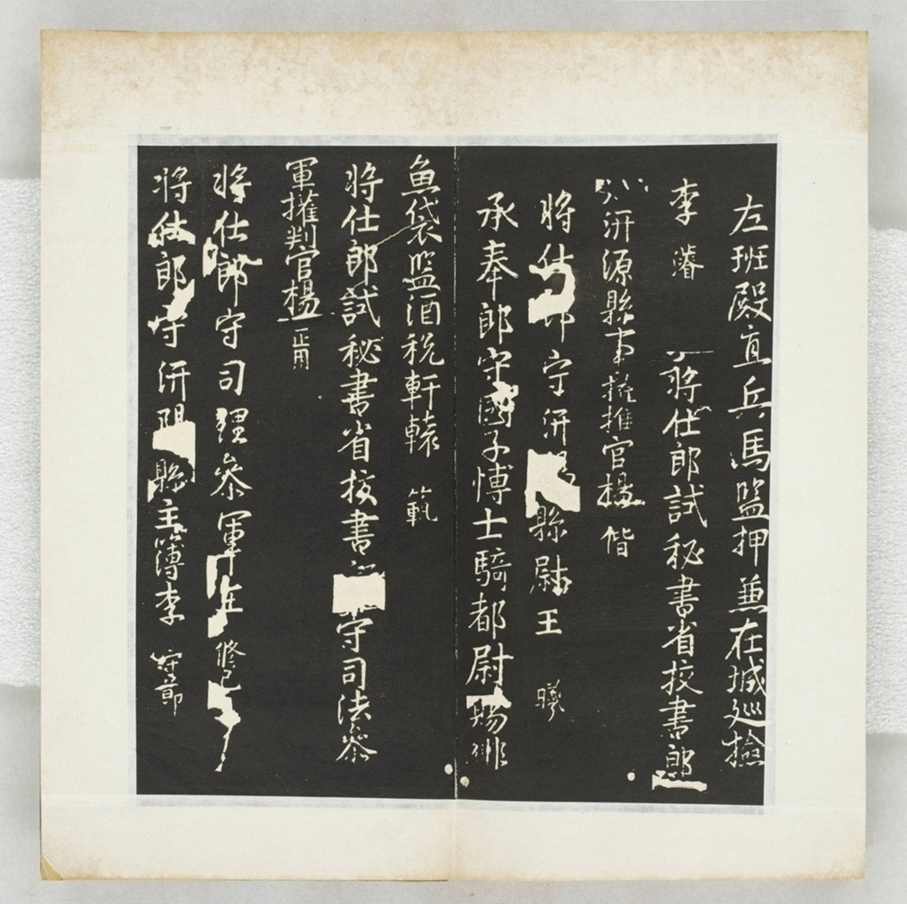 左班殿直兵馬監押兼在城巡檢
李 濬 將仕郎試秘書省校書郎
汧源縣事權推官楊 偕
將仕郎守汧縣尉王 曦
承奉郎守國子博士騎都尉賜緋
魚袋監酒稅軒轅 範
將仕郎試秘書省校書守司法參
軍權判官楊 正用
將仕郎守司理參軍 修己
將仕郎守汧陽縣主簿李 守節